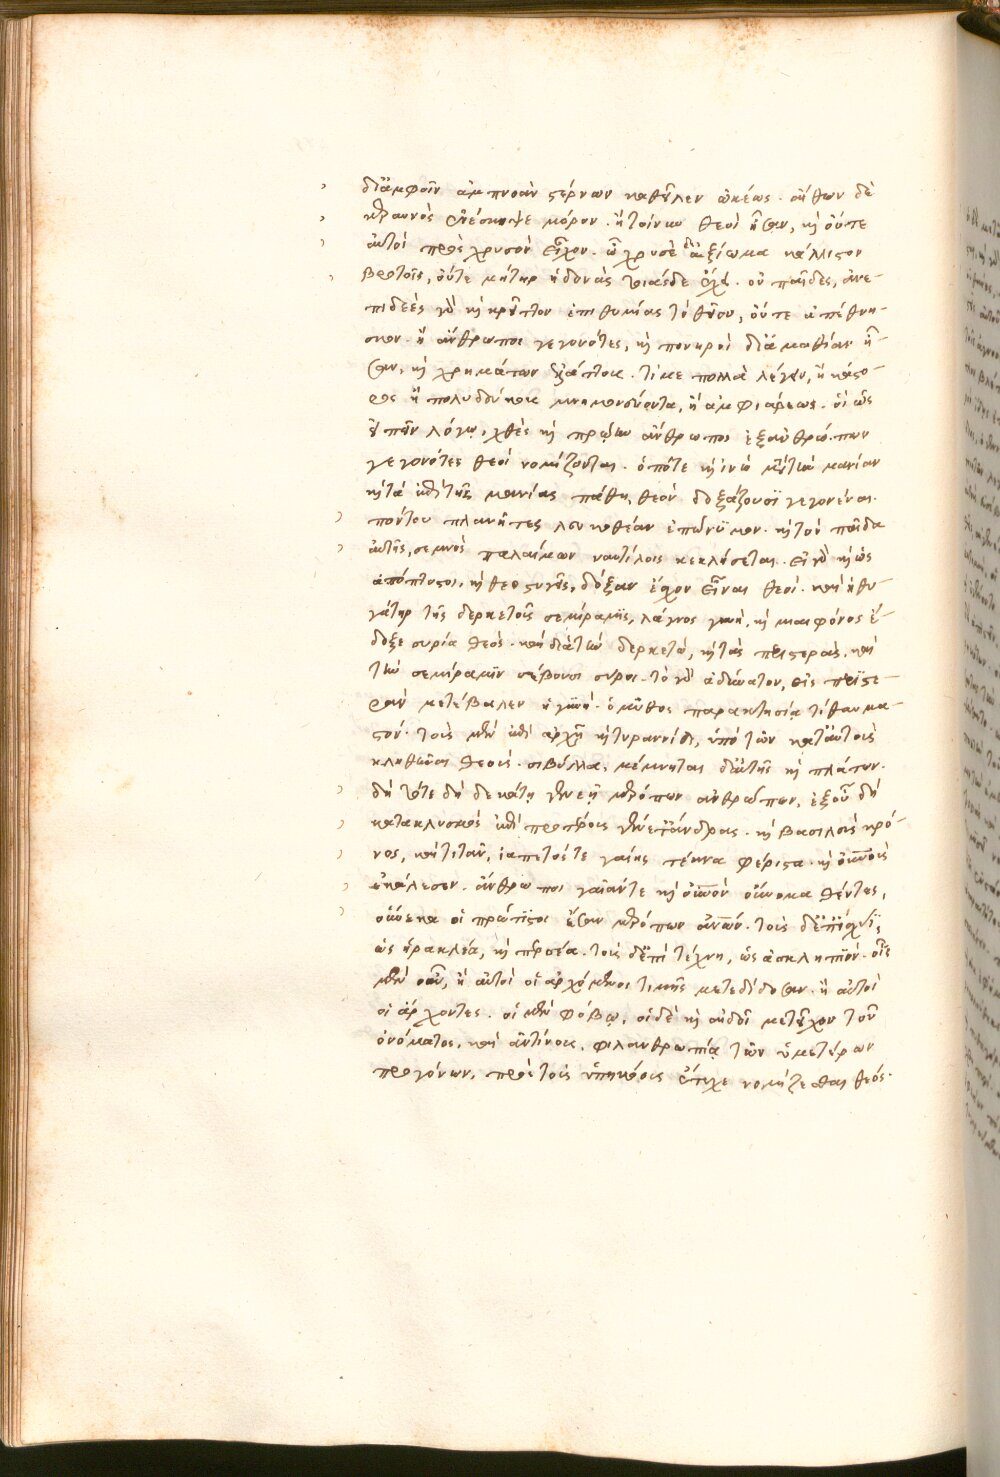 δι' ἀμφοῖν ἀμπνοὰν στέρνων καθεῖλεν ὠκέως. αἴθων δὲ
κεραυνὸς ἐνέσκηψε μόρον. ἢ τοίνυν θεοὶ ἦσαν, καὶ οὔτε
αὐτοὶ πρὸς χρυσὸν εἶχον. ὦ χρυσὲ δεξίωμα κάλλιστον
βροτοῖς, οὔτε μήτηρ ἡδονὰς τοιάσδε ἔχει. οὐ παῖδες, ἀνε-
πιδεὲς γὰρ καὶ κρεῖττον ἐπιθυμίας τὸ θεῖον, οὔτε ἀπέθνη-
σκον. ἢ ἄνθρωποι γεγονότες, καὶ πονηροὶ δι' ἀμαθίαν ἦ-
σαν, καὶ χρημάτων ἐλάττους. τί με πολλὰ λέγειν, ἢ κάστο-
ρος ἢ πολυδεύκους μνημονεύοντα, ἢ ἀμφιάρεως. οἳ ὡς
εἰπεῖν λόγῳ, χθὲς καὶ πρώην ἄνθρωποι ἐξ ἀνθρώπων
γεγονότες θεοὶ νομίζονται. ὁπότε καὶ ἰνὼ μετὰ τὴν μανίαν
καὶ τὰ ἐπὶ τῆς μανίας πάθη, θεὸν δοξάζουσι γεγονέναι.
πόντου πλανῆτες λευκοθέαν ἐπώνυμον. καὶ τὸν παῖδα
αὐτῆς, σεμνὸς παλαίμων ναυτίλοις κεκλήσεται. εἰ γὰρ καὶ ὡς
ἀπόπτυστοι, καὶ θεοστυγεῖς, δόξαν ἔσχον εἶναι θεοί. καὶ ἡ θυ-
γάτηρ τῆς δερκετοῦς σεμίραμις, λάγνος γυνὴ, καὶ μιαιφόνος ἔ-
δοξε συρία θεός. καὶ διὰ τὴν δερκετὼ, καὶ τὰς περιστερὰς, καὶ
τὴν σεμίραμιν σέβουσι σύροι. τὸ γὰρ ἀδύνατον, εἰς περιστε-
ρὰν μετέβαλεν ἡ γυνή. ὁ μῦθος παρὰ κτησίᾳ τί θαυμα-
στόν. τοὺς μὲν ἐπὶ ἀρχῇ καὶ τυραννίδι, ὑπὸ τῶν κατ' αὐτοὺς
κληθῆναι θεούς. σιβύλλα, μέμνηται δ' αὐτῆς καὶ πλάτων.
δὴ τότε δὴ δεκάτη γενεὴ μερόπων ἀνθρώπων, ἐξ οὗ δὴ
κατακλυσμὸς ἐπὶ προτέρους γένετ' ἄνδρας. καὶ βασίλευσε κρό-
νος, καὶ τιτὰν, ἰαπετός τε γαίης τέκνα φέριστα. καὶ οὐρανοῦς
ἐκάλεσεν. ἄνθρωποι γαῖάν τε καὶ οὐρανὸν οὔνομα θέντες,
οὕνεκα οἱ πρώτιστοι ἔσαν μερόπων ἀνθρώπων. τοὺς δ' ἐπ' ἰσχύϊ,
ὡς ἡρακλέα, καὶ περσέα. τοὺς δ' ἐπὶ τέχνῃ, ὡς ἀσκληπιόν. οἷς
μὲν οὖν, ἢ αὐτοὶ οἱ ἀρχόμενοι τιμῆς μετεδίδοσαν. ἢ αὐτοὶ
οἱ ἄρχοντες. οἱ μὲν φόβῳ, οἱ δὲ καὶ αἰδοῖ μετεῖχον τοῦ
ὀνόματος. καὶ ἀντίνους, φιλανθρωπίᾳ τῶν ὑμετέρων
προγόνων, πρὸς τοὺς ὑπηκόους ἔτυχε νομίζεσθαι θεός.